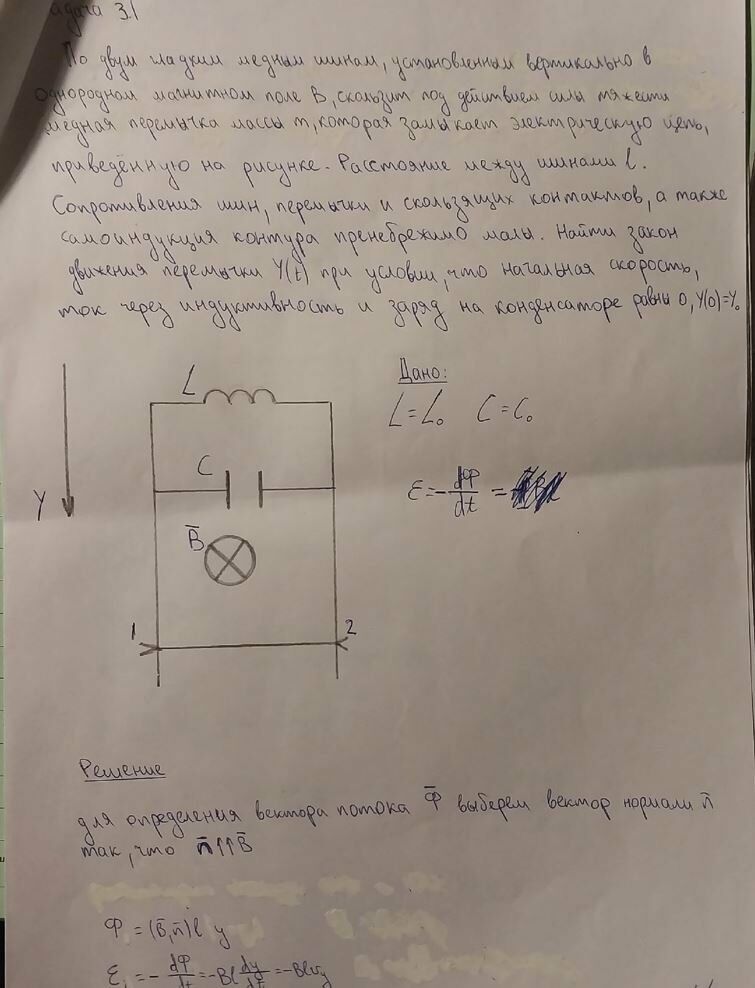 адача 3.1
По двум гладким медным шинам, установленным вертикально в
однородном магнитном поле B, скользит под действием силы тяжести
медная перемычка массы m, которая замыкает электрическую цепь,
приведённую на рисунке. Расстояние между шинами l.
Сопротивления шин, перемычки и скользящих контактов, а также
самоиндукция контура пренебрежимо малы. Найти закон
движения перемычки Y(t) при условии, что начальная скорость,
ток через индуктивность и заряд на конденсаторе равны 0, Y(0)=Y₀
L
Дано:
L=L₀ C=C₀
C
Y
ε=-dΦ/dt =
B̄
1
2
Решение
для определения вектора потока Φ̄ выберем вектор нормали n̄
так, что n̄↑↑B̄
Φ₁=(B̄,n̄)l y
ε₁=-dΦ/dt=-Bl dy/dt=-Blυy